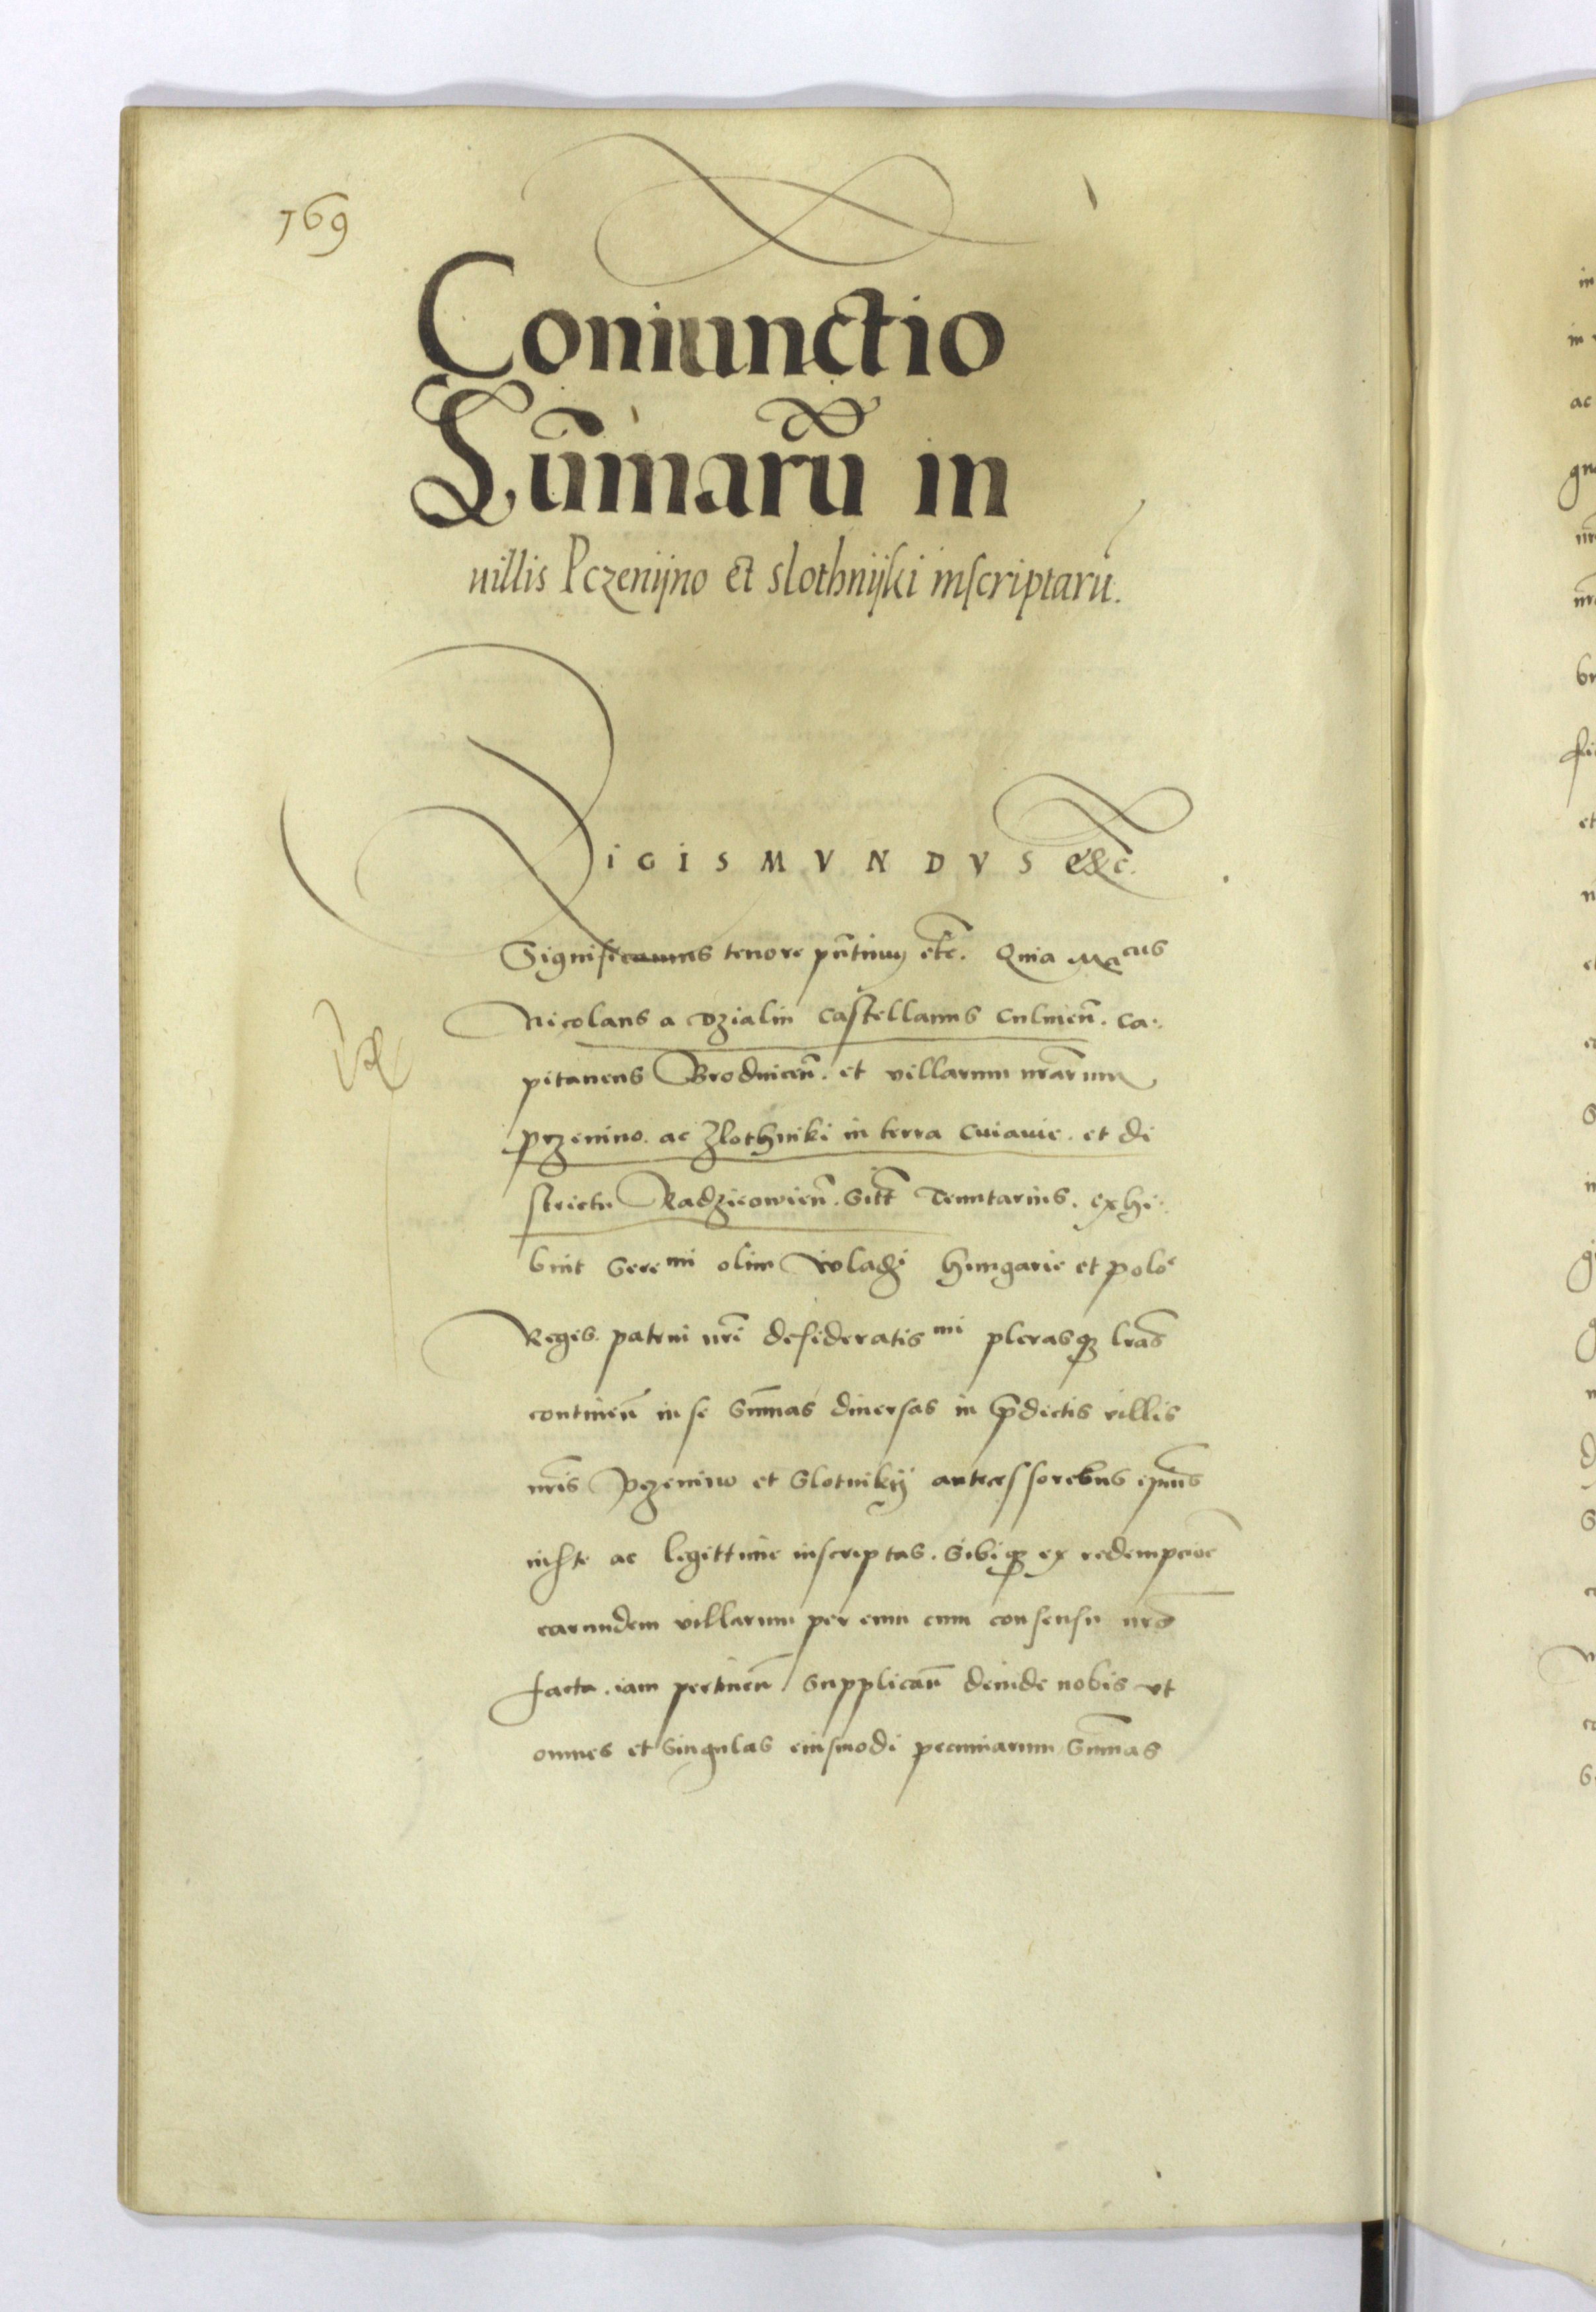 169
Coniunctio
Sum̄arū in
uillis Pczenijno et slothnijki inscriptarū.
SIGISMVNDVS etc.
Significamus tenore pn̄tium etc̄. Quia Ma^cus
Nicolaus a Dzialin Castellanus Culmen̄. Ca:
pitaneus Brodnicen̄. et villarum nr̄arum
pczenino. ac Zlothniki in terra Cuiauie. et di
strictu Radzieowien̄. sitt̄ Tenutarius. exhi:
buit Sere^mi olim Wladi Hungarie et polo^e
Regis. patrui nr̄i desideratis^mi plerasq3 lr̄as
continen̄ in se Sum̄as diuersas in p̄dictis villis
nr̄is Pczenino et Slotnikij antecessorebus ipius
iuste ac legittime inscriptas. Sibiq3 ex redempcioē
earundem villarum per eum cum consensu nr̄o
facta. iam pertinen̄ Supplican̄ deinde nobis vt
omnes et singulas eiusmodi pecuniarum Sum̄as